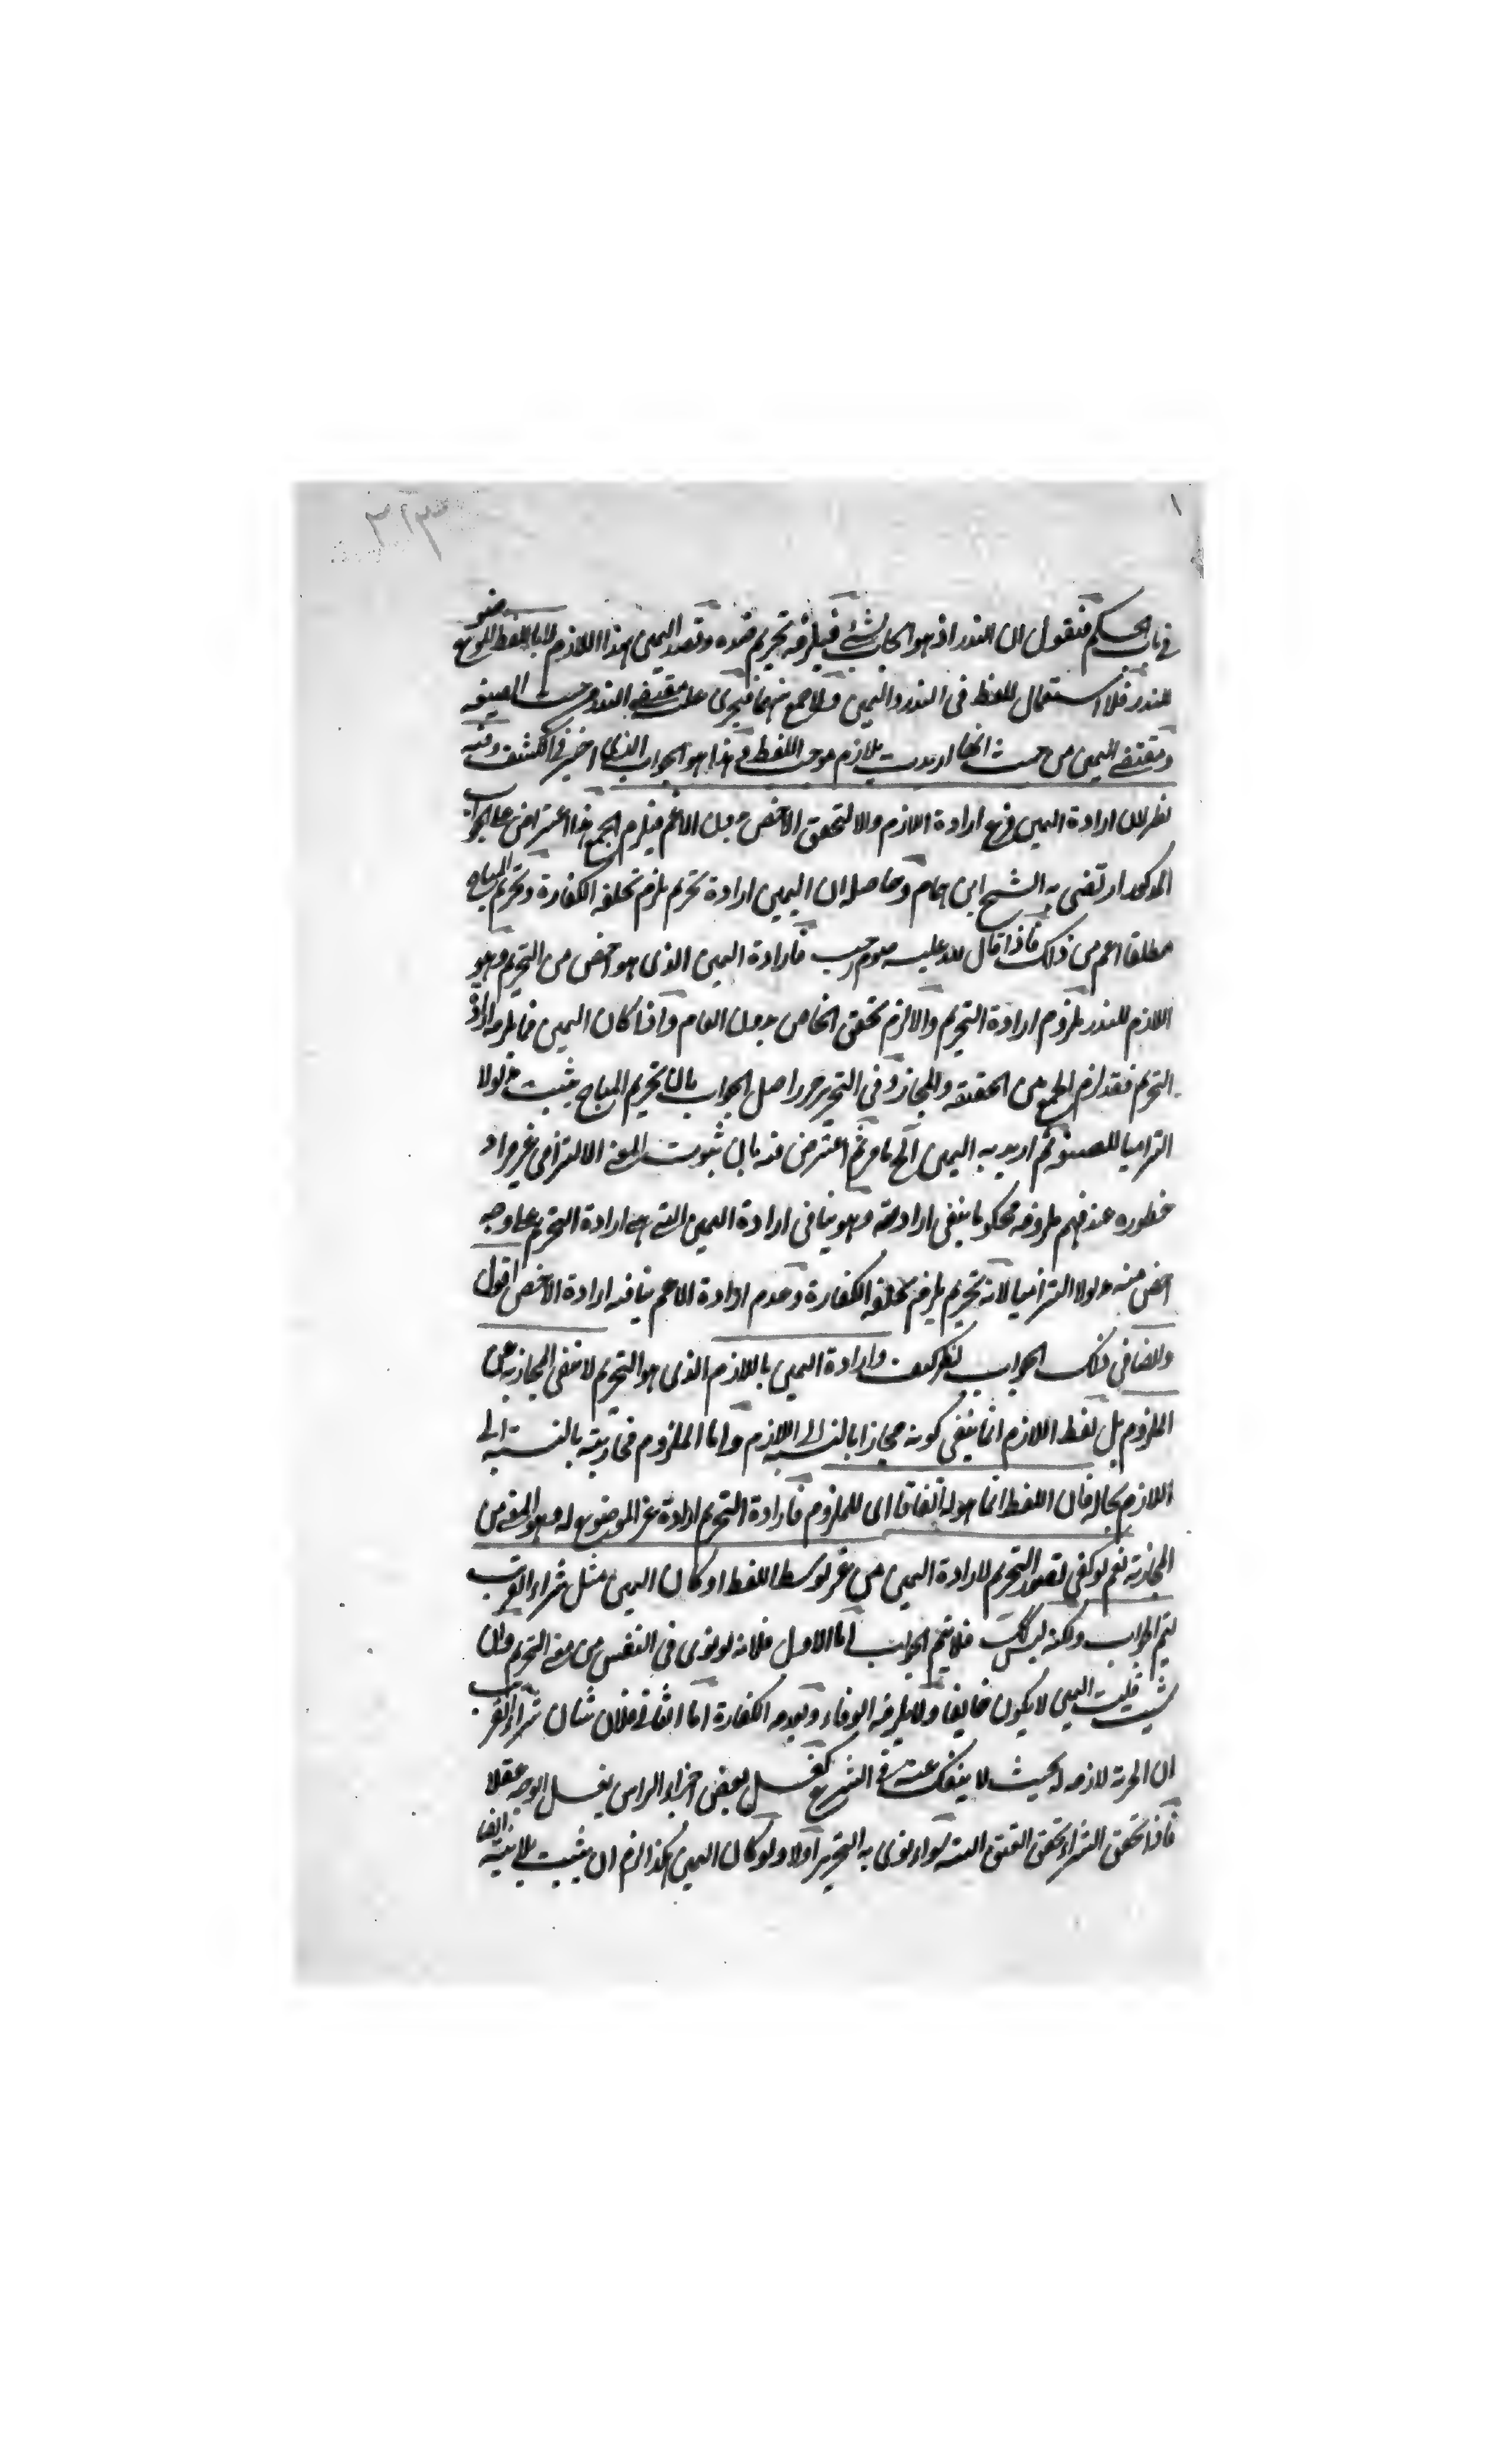 ١
٣١٣
في باب الحكم فنقول ان النذر اذ هو ايجاب لشئ فيلزمه تحريم ضده وقصد اليمين بهذا اللازم لا باللفظ الموضوع
للنذر فلا استعمال للفظ في النذر واليمين ولا جمع بينهما فيجري على مقتضى النذر من حيث الصيغة
ومقتضى اليمين من حيث انها اريدت بلازم موجب اللفظ هذا هو الجواب الذي اختير في الكشف وفيه
نظر لان ارادة اليمين فرع ارادة اللازم والا لتحقق الاخص بدون الاعم فيلزم الجمع هذا اعتراض على الجواب
المذكور ارتضى به الشيخ ابن همام وحاصله ان اليمين ارادة تحريم يلزم بخلفه الكفارة وتحريم المباح
مطلقا اعم من ذلك فاذا قال لله عليه صوم رجب فارادة اليمين الذي هو اخص من التحريم وهو
اللازم للنذر ملزوم ارادة التحريم والا لزم تحقق الخاص بدون العام واذا كان اليمين مما يلزمه ارادة
التحريم فقد لزم الجمع بين الحقيقة والمجاز وفي التحرير حرر اصل الجواب بان تحريم المباح يثبت مدلولا
التزاميا للصيغة ثم اريد به اليمين الخ ما مر ثم اعترض فيه بان ثبوت المعنى الالتزامي غير مراد
خطوره عند فهم ملزومه محكوما بنفي ارادته وهو ينافي ارادة اليمين التي هي ارادة التحريم على وجه
اخص منه مدلولا التزاميا لانه تحريم يلزم بخلفه الكفارة وعدم ارادة الاعم ينافيه ارادة الاخص اقول
وايضا في ذلك الجواب نظر كيف وارادة اليمين باللازم الذي هو التحريم لا ينفي المجازية عن
الملزوم بل لفظ اللازم انما ينفي كونه مجازا بالنسبة الى اللازم واما الملزوم فمجازيته بالنسبة الى
اللازم بحاله فان اللفظ انما هو له اتفاقا اي للملزوم فارادة التحريم ارادة غير الموضوع له وهو المعني من
المجازية نعم لو كفى تصور التحريم لارادة اليمين من غير توسط اللفظ او كان اليمين مثل شراء القريب
لتم الجواب ولكنه ليس كذلك فلا يتم الجواب اما الاول فلانه لو نوى في النفس من معنى التحريم وان
شئت قلت اليمين لا يكون حالفا ولا يلزمه الوفاء وبعدمه الكفارة اما الثاني فلان شان شراء القريب
ان الحرية لازمة له بحيث لا ينفك عنه في الشرع كغسل بعض اجزاء الراس بغسل الوجه عقلا
فاذا تحقق الشراء تحقق العتق البتة سواء نوى به التحرير اولا ولو كان اليمين هكذا لزم ان يثبت بلا نية ايضا